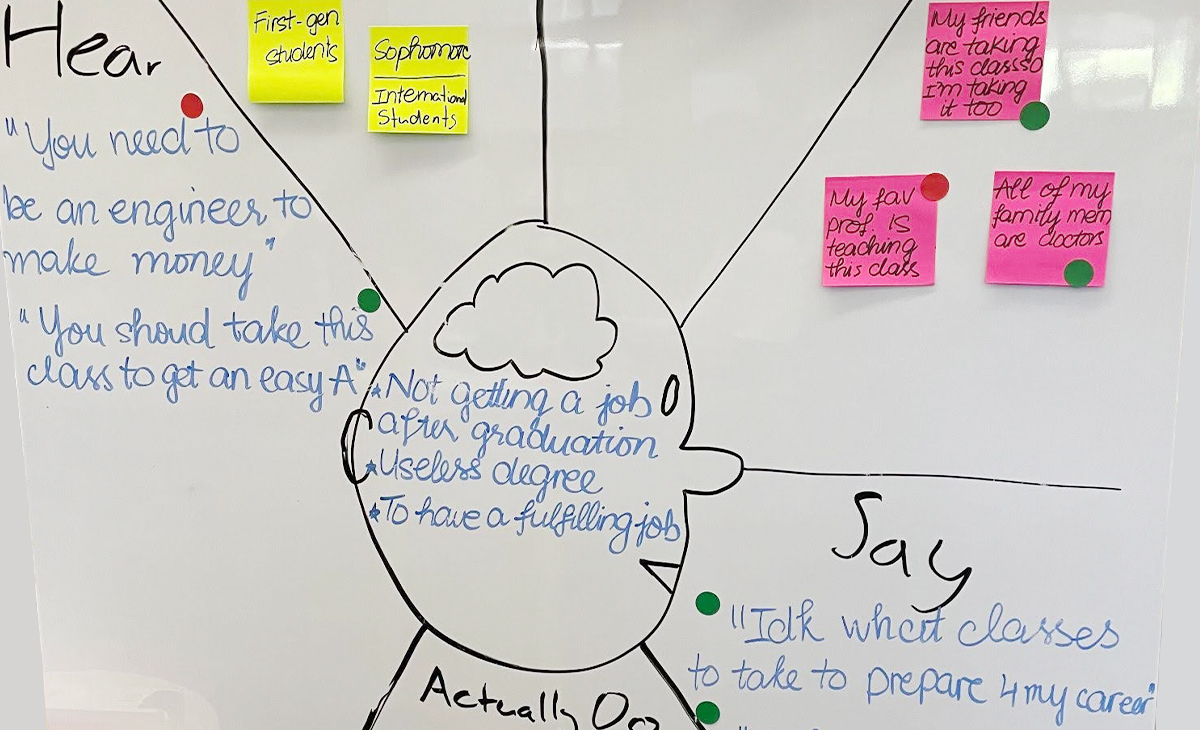 Hear
"You need to
be an engineer to
make money"
"You shoud take this
class to get an easy A"
First-gen
students
Sophomore
International
Students
My friends
are taking
this class so
I'm taking
it too
My fav
prof. IS
teaching
this class
All of my
family mem
are doctors
*Not getting a job
after graduation
*Useless degree
*To have a fulfilling job
Say
"Idk what classes
to take to prepare 4 my career"
Actually Do